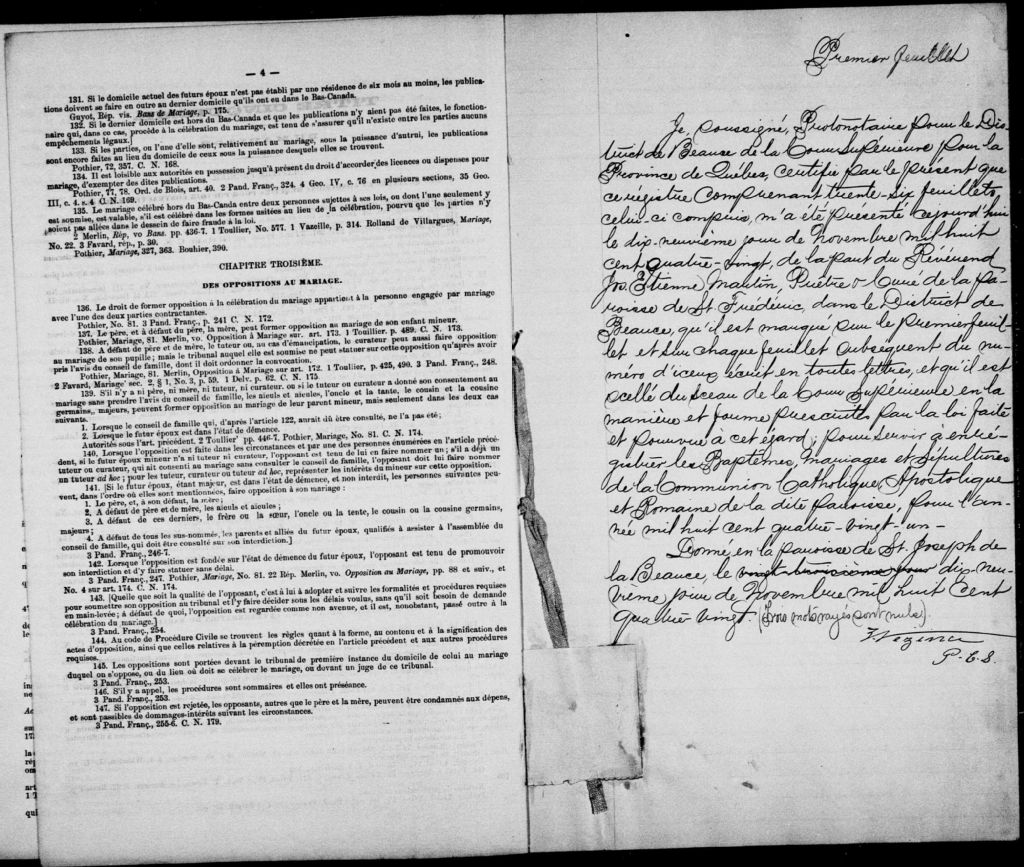 — 4 —
131. Si le domicile actuel des futurs époux n'est pas établi par une résidence de six mois au moins, les publica-
tions doivent se faire en outre au dernier domicile qu'ils ont eu dans le Bas-Canada.
Guyot, Rép. vis. Bans de Mariage, p. 175.
132. Si le dernier domicile est hors du Bas-Canada et que les publications n'y aient pas été faites, le fonction-
naire qui, dans ce cas, procède à la célébration du mariage, est tenu de s'assurer qu'il n'existe entre les parties aucuns
empêchements légaux.]
133. Si les parties, ou l'une d'elle sont, relativement au mariage, sous la puissance d'autrui, les publications
sont encore faites au lieu du domicile de ceux sous la puissance desquels elles se trouvent.
Pothier, 72, 357. C. N. 168.
134. Il est loisible aux autorités en possession jusqu'à présent du droit d'accorder des licences ou dispenses pour
mariage, d'exempter des dites publications.
Pothier, 77, 78. Ord. de Blois, art. 40. 2 Pand. Franç., 324. 4 Geo. IV, c. 76 en plusieurs sections, 35 Geo.
III, c. 4. s. 4 C. N. 169.
135. Le mariage célébré hors du Bas-Canda entre deux personnes sujettes à ses lois, ou dont l'une seulement y
est soumise, est valable, s'il est célébré dans les formes usitées au lieu de la célébration, pourvu que les parties n'y
soient pas allées dans le dessein de faire fraude à la loi.
2 Merlin, Rép, vo Bans. pp. 436-7. 1 Toullier, No. 577. 1 Vazeille, p. 314. Rolland de Villargues, Mariage,
No. 22. 3 Favard, rép., p. 30.
Pothier, Mariage, 327, 363. Bouhier, 390.
CHAPITRE TROISIÈME.
DES OPPOSITIONS AU MARIAGE.
136. Le droit de former opposition à la célébration du mariage appartient à la personne engagée par mariage
avec l'une des deux parties contractantes.
Pothier, No. 81. 3 Pand. Franç., p. 241 C. N. 172.
137. Le père, et à défaut du père, la mère, peut former opposition au mariage de son enfant mineur.
Pothier, Mariage, 81. Merlin, vo. Opposition à Mariage sur. art. 173. 1 Touillier. p. 489. C. N. 173.
138. A défaut de père et de mère, le tuteur ou, au cas d'émancipation, le curateur peut aussi faire opposition
au mariage de son pupille; mais le tribunal auquel elle est soumise ne peut statuer sur cette opposition qu'après avoir
pris l'avis du conseil de famille, dont il doit ordonner la convocation.
Pothier, Mariage, 81. Merlin, Opposition à Mariage sur art. 172. 1 Toullier, p. 425, 490. 3 Pand. Franç., 248.
2 Favard, Mariage' sec. 2, § 1, No. 3, p. 59. 1 Delv. p. 62. C. N. 175.
139. S'il n'y a ni père, ni mère, ni tuteur, ni curateur, ou si le tuteur ou curateur a donné son consentement au
mariage sans prendre l'avis du conseil de famille, les aieuls et aieules, l'oncle et la tante, le cousin et la cousine
germains, majeurs, peuvent former opposition au mariage de leur parent mineur, mais seulement dans les deux cas
suivants.
1. Lorsque le conseil de famille qui, d'après l'article 122, aurait dû être consulté, ne l'a pas été;
2. Lorsque le futur époux est dans l'état de démence.
Autorités sous l'art. précédent. 2 Toullier' pp. 446-7. Pothier, Mariage, No. 81. C. N. 174.
140. Lorsque l'opposition est faite dans les circonstances et par une des personnes énumérées en l'article précé-
dent, si le futur époux mineur n'a ni tuteur ni curateur, l'opposant est tenu de lui en faire nommer un; s'il a déjà un
tuteur ou curateur, qui ait consenti au mariage sans consulter le conseil de famille, l'opposant doit lui faire nommer
un tuteur ad hoc; pour lui, curateur ou tuteur ad hoc, représenter les intérêts du mineur sur cette opposition.
141. [Si le futur époux, étant majeur, est dans l'état de démence, et non interdit, les personnes suivantes peu-
vent, dans l'ordre où elles sont mentionnées, faire opposition à son mariage:
1. Le père, et, à son défaut, la mère;
2. A défaut de père et de mère, les aieuls et aieules;
3. A défaut de ces derniers, le frère ou la sœur, l'oncle ou la tente, le cousin ou la cousine germains,
majeurs;
4. A défaut de tous les sus-nommés, les parents et alliés du futur époux, qualifiés à assister à l'assemblée du
conseil de famille, qui doit être consulté sur son interdiction.]
3 Pand. Franç., 246-7.
142. Lorsque l'opposition est fondée sur l'état de démence du futur époux, l'opposant est tenu de promouvoir
son interdiction et d'y faire statuer sans délai.
3 Pand. Franç., 247. Pothier, Mariage, No. 81. 22 Rép. Merlin, vo. Opposition au Mariage, pp. 88 et suiv., et
No. 4 sur art. 174. C. N. 174.
143. [Quelle que soit la qualité de l'opposant, c'est à lui à adopter et suivre les formalités et procédures requises
pour soumettre son opposition au tribunal et l'y faire décider sous les délais voulus, sans qu'il soit besoin de demande
en main-levée; à défaut de quoi, l'opposition est regardée comme non avenue, et il est, nonobstant, passé outre à la
célébration du mariage.]
3 Pand. Franç., 254.
144. Au code de Procédure Civile se trouvent les règles quant à la forme, au contenu et à la signification des
actes d'opposition, ainsi que celles relatives à la péremption décrétée en l'article précédent et aux autres procédures
requises.
145. Les oppositions sont portées devant le tribunal de première instance du domicile de celui au mariage
duquel on s'oppose, ou du lieu où doit se célébrer le mariage, ou devant un juge de ce tribunal.
3 Pand. Franç., 253.
146. S'il y a appel, les procédures sont sommaires et elles ont préséance.
3 Pand. Franç., 253.
147. Si l'opposition est rejetée, les opposants, autres que le père et la mère, peuvent être condamnés aux dépens,
et sont passibles de dommages-intérêts suivant les circonstances.
3 Pand. Franç., 255-6. C. N. 179.
Premier feuillet
Je, soussigné, Protonotaire pour le Dis-
trict de Beauce de la Cour Supérieure pour la
Province de Québec, certifie par le présent que
ce régistre comprenant trente-six feuillets,
celui-ci compris, m'a été présenté cejourd'hui
le dix-neuvième jour de Novembre mil huit
cent quatre-vingt, de la part du Révérend
Jos. Etienne Martin, Prêtre & Curé de la pa-
roisse de St Frédéric, dans le District de
Beauce, qu'il est marqué sur le premier feuil-
let et sur chaque feuillet subsequent du nu-
méro d'iceux écrit en toutes lettres, et qu'il est
scellé du sceau de la Cour Supérieure en la
manière et forme prescrits par la loi faite
et pourvue à cet égard; pour servir à enré-
gistrer les Baptêmes, Mariages et Sépultures
de la Communion Catholique, Apostolique
et Romaine de la dite paroisse, pour l'an-
née mil huit cent quatre-vingt-un-
Donné, en la paroisse de St. Joseph de
la Beauce, le vingt troisième jour dix-neu-
vième jour de Novembre mil huit cent
quatre vingt. (Trois mots rayés sont nuls).
Vezina
P. C. S.